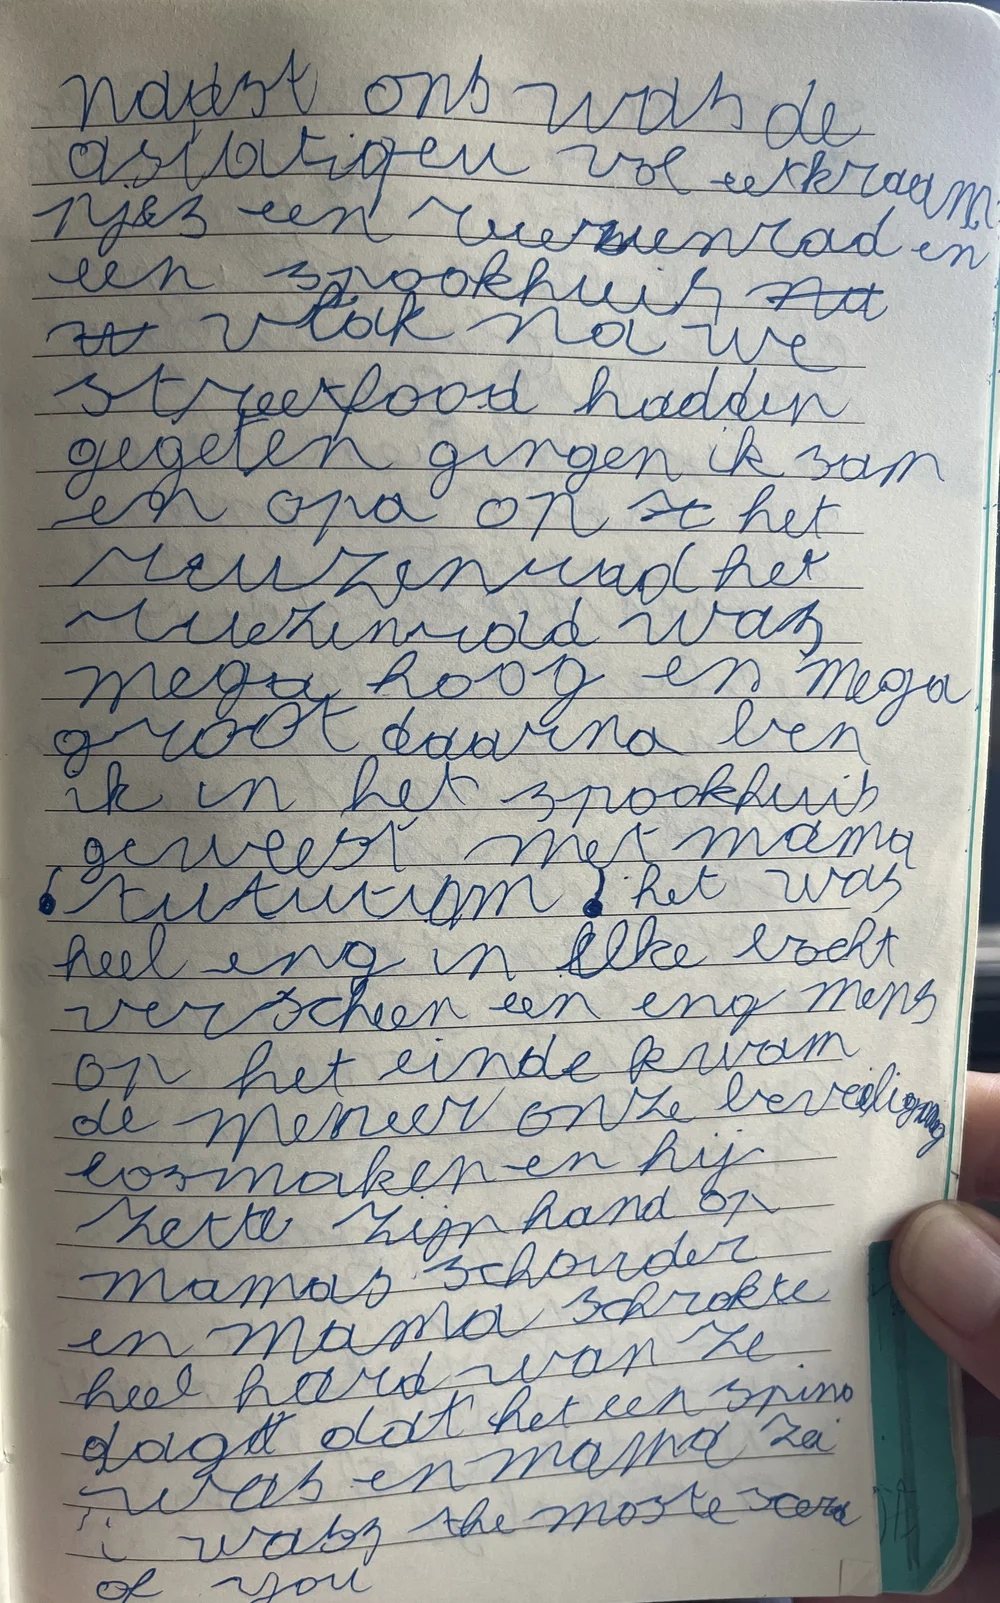 naast ons was de
asiatigen vol eetkraam
njes een reuzenrad en
een spookhuis na
vlak na we
streetfood hadden
gegeten gingen ik sam
en opa op het
reuzenrad het
reuzenrad was
mega hoog en mega
groot daarna ben
ik in het spookhuis
geweest met mama
tututum het was
heel eng in elke bocht
verscheen een eng mens
op het einde kwam
de meneer onze beveiliging
losmaken en hij
zette zijn hand op
mamas schouder
en mama schrokte
heel hard want ze
dagt dat het een spino
was en mama zei
i wass the moste scera
of you